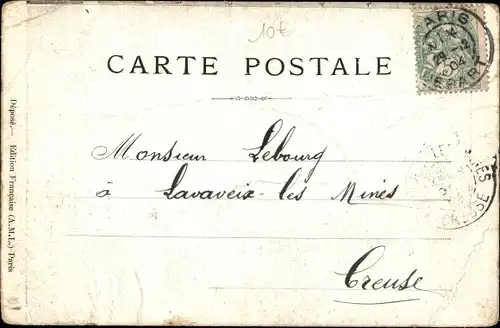 10€
PARIS
04
DEPART
CARTE POSTALE
Monsieur Lebourg
à Lavaveix-les Mines
Creuse
CREUSE
Déposé. — Edition Française (A. M. L.) Paris